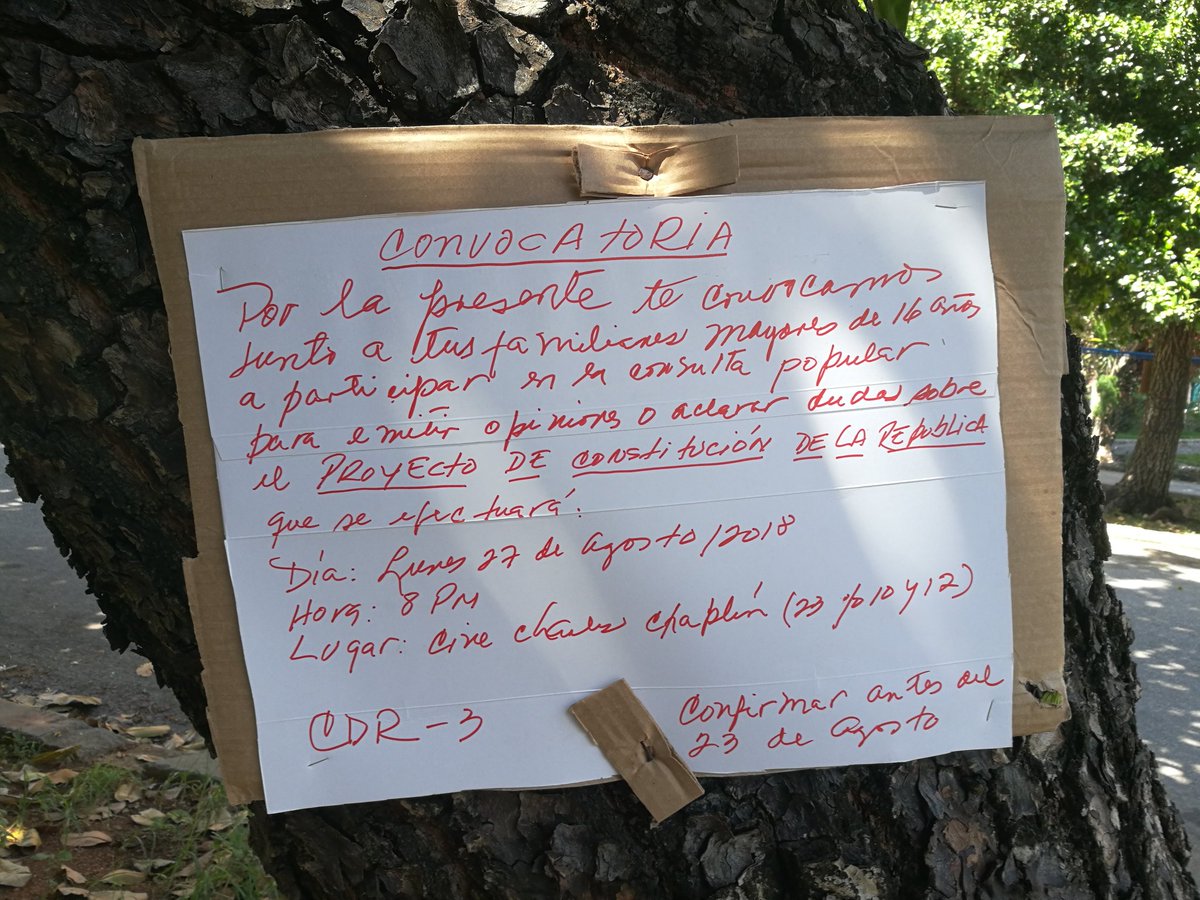 CONVOCATORIA
Por la presente te convocamos
junto a tus familiares mayores de 16 años
a participar en la consulta popular
para emitir opiniones o aclarar dudas sobre
el PROYECTO DE CONSTITUCIÓN DE LA REPUBLICA
que se efectuará:
Día: Lunes 27 de agosto/2018
Hora: 8 PM
Lugar: Cine Charles Chaplin (23 % 10 y 12)
CDR-3
Confirmar antes del
23 de agosto